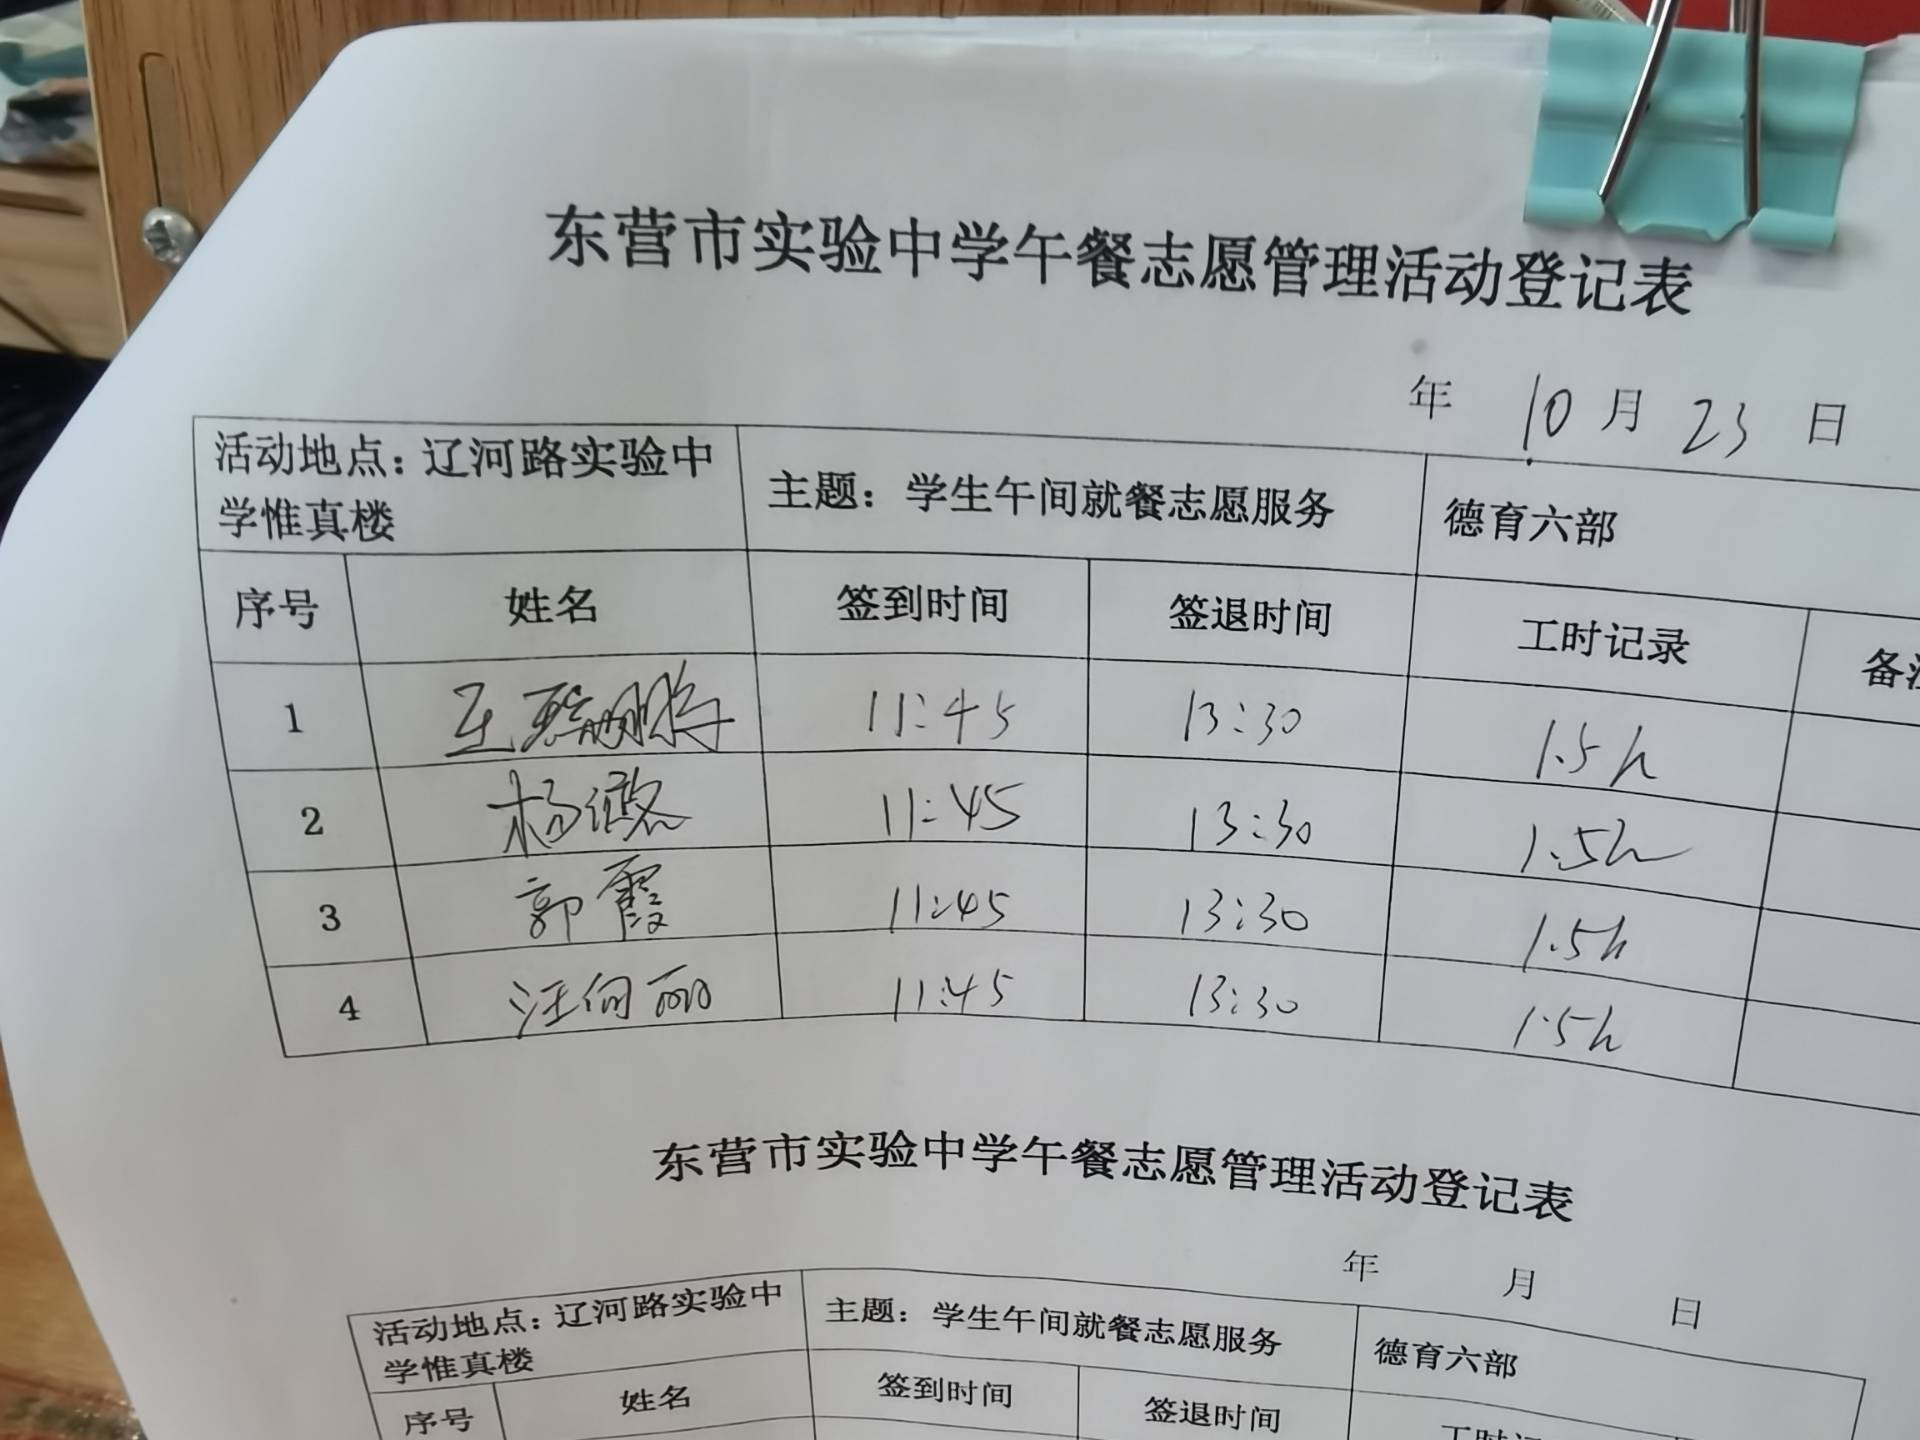 东营市实验中学午餐志愿管理活动登记表
年 10 月 23 日
活动地点：辽河路实验中学惟真楼 主题：学生午间就餐志愿服务 德育六部
序号 姓名 签到时间 签退时间 工时记录 备注
1 11:45 13:30 1.5h
2 杨 11:45 13:30 1.5h
3 郭霞 11:45 13:30 1.5h
4 汪向丽 11:45 13:30 1.5h
东营市实验中学午餐志愿管理活动登记表
年 月 日
活动地点：辽河路实验中学惟真楼 主题：学生午间就餐志愿服务 德育六部
序号 姓名 签到时间 签退时间 工时记